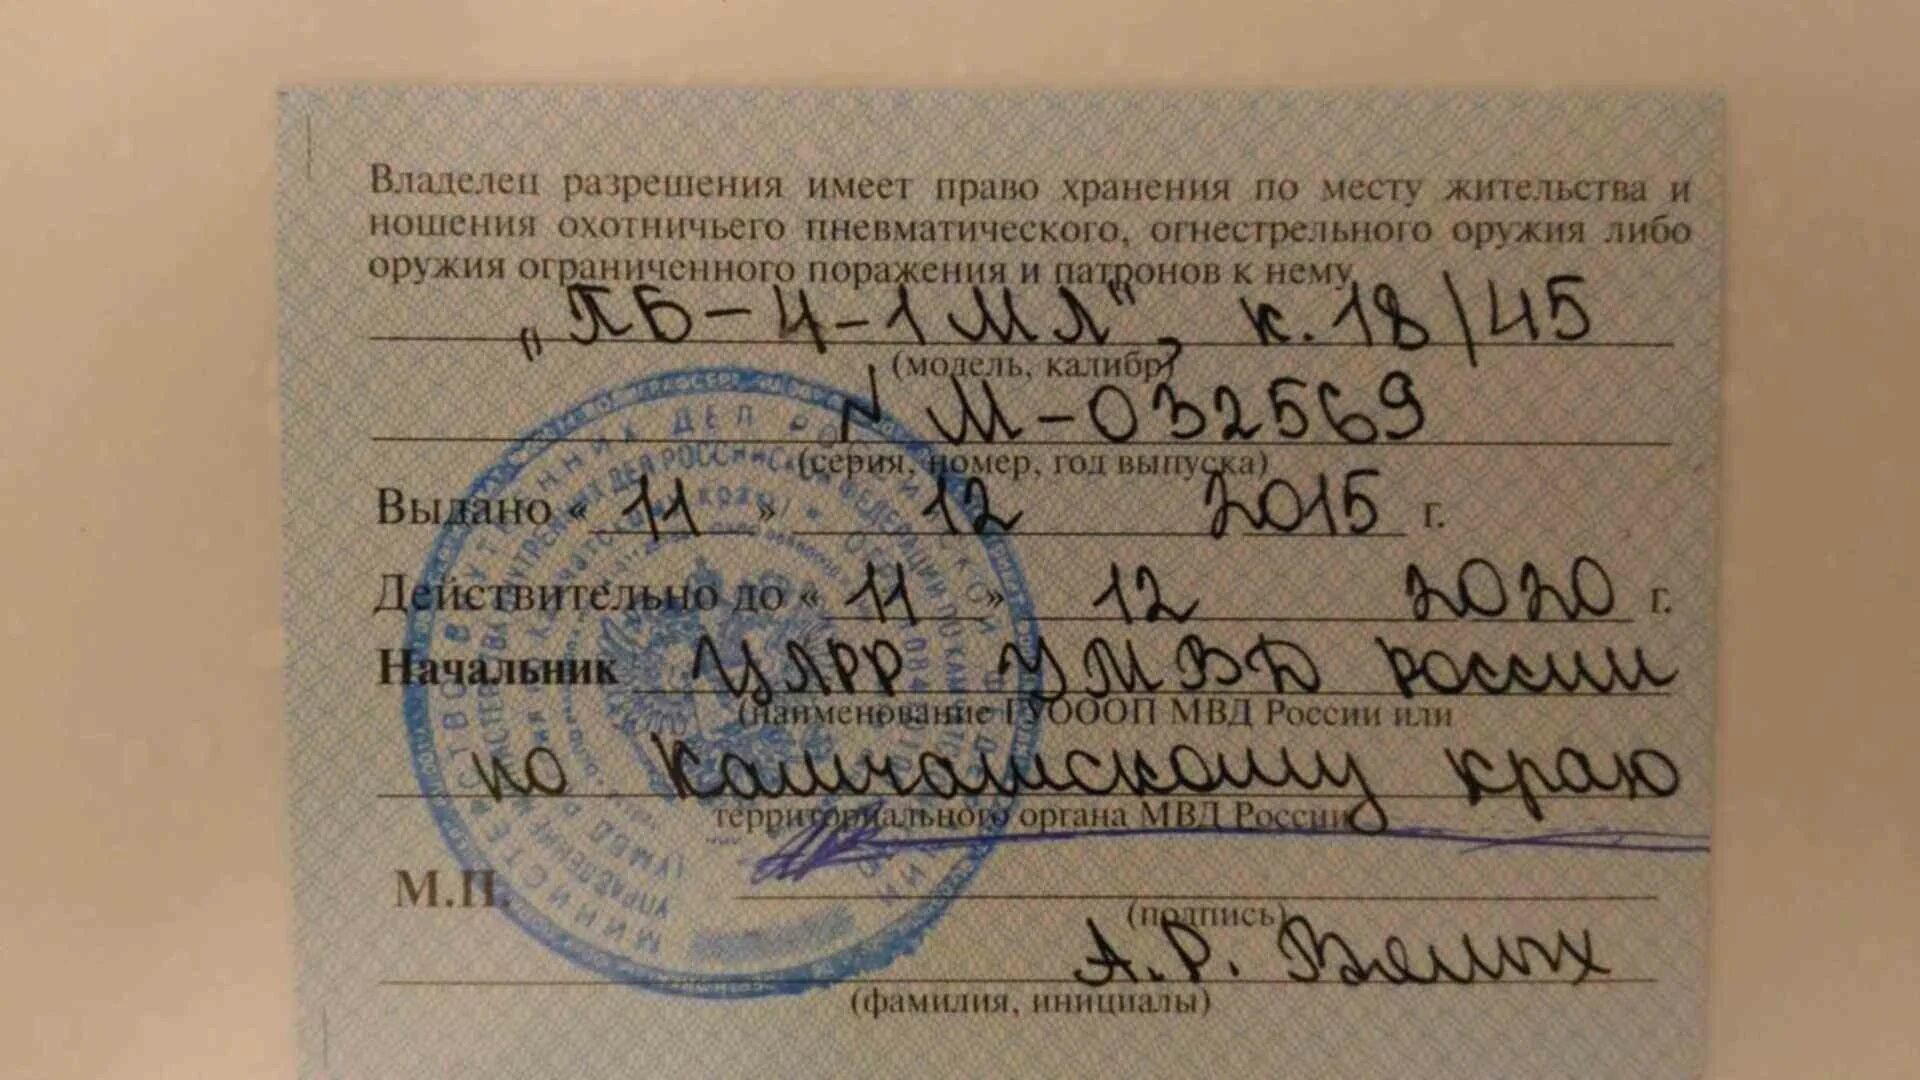 Владелец разрешения имеет право хранения по месту жительства и
ношения охотничьего пневматического, огнестрельного оружия либо
оружия ограниченного поражения и патронов к нему
„ПБ-4-1МЛ", к. 18/45
(модель, калибр)
№ М-032569
(серия, номер, год выпуска)
Выдано « 11 » 12 2015 г.
Действительно до « 11 » 12 2020 г.
Начальник ЦЛРР УМВД России
(наименование ГУОООП МВД России или
по Камчатскому краю
территориального органа МВД России)
М.П.
(подпись)
А.Р. Вялых
(фамилия, инициалы)